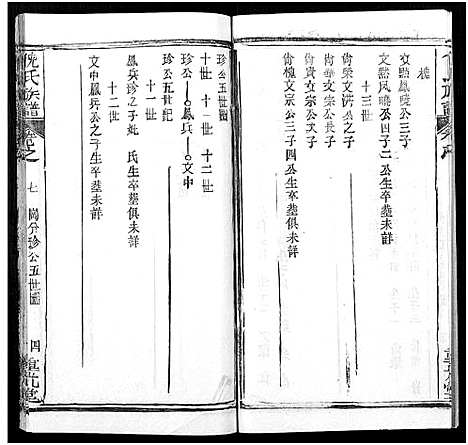 槐
文㸃鳳曉公三子
文黙風曉公四子二公生卒塟俱未詳
十三世
尙榮文洪公之子
尙華文宗公長子
尙貴文宗公次子
尙槐文宗公三子四公生卒塟俱未詳
珍公五世圖
十世 十一世 十二世
珍公 鳳兵 文中
珍公五世記
十一世
鳳兵珍之子妣 氏生卒塟俱未詳
十二世
文中鳳兵公之子生卒塟未詳
倪氏族譜
卷之
七
崗分珍公五世圖
四